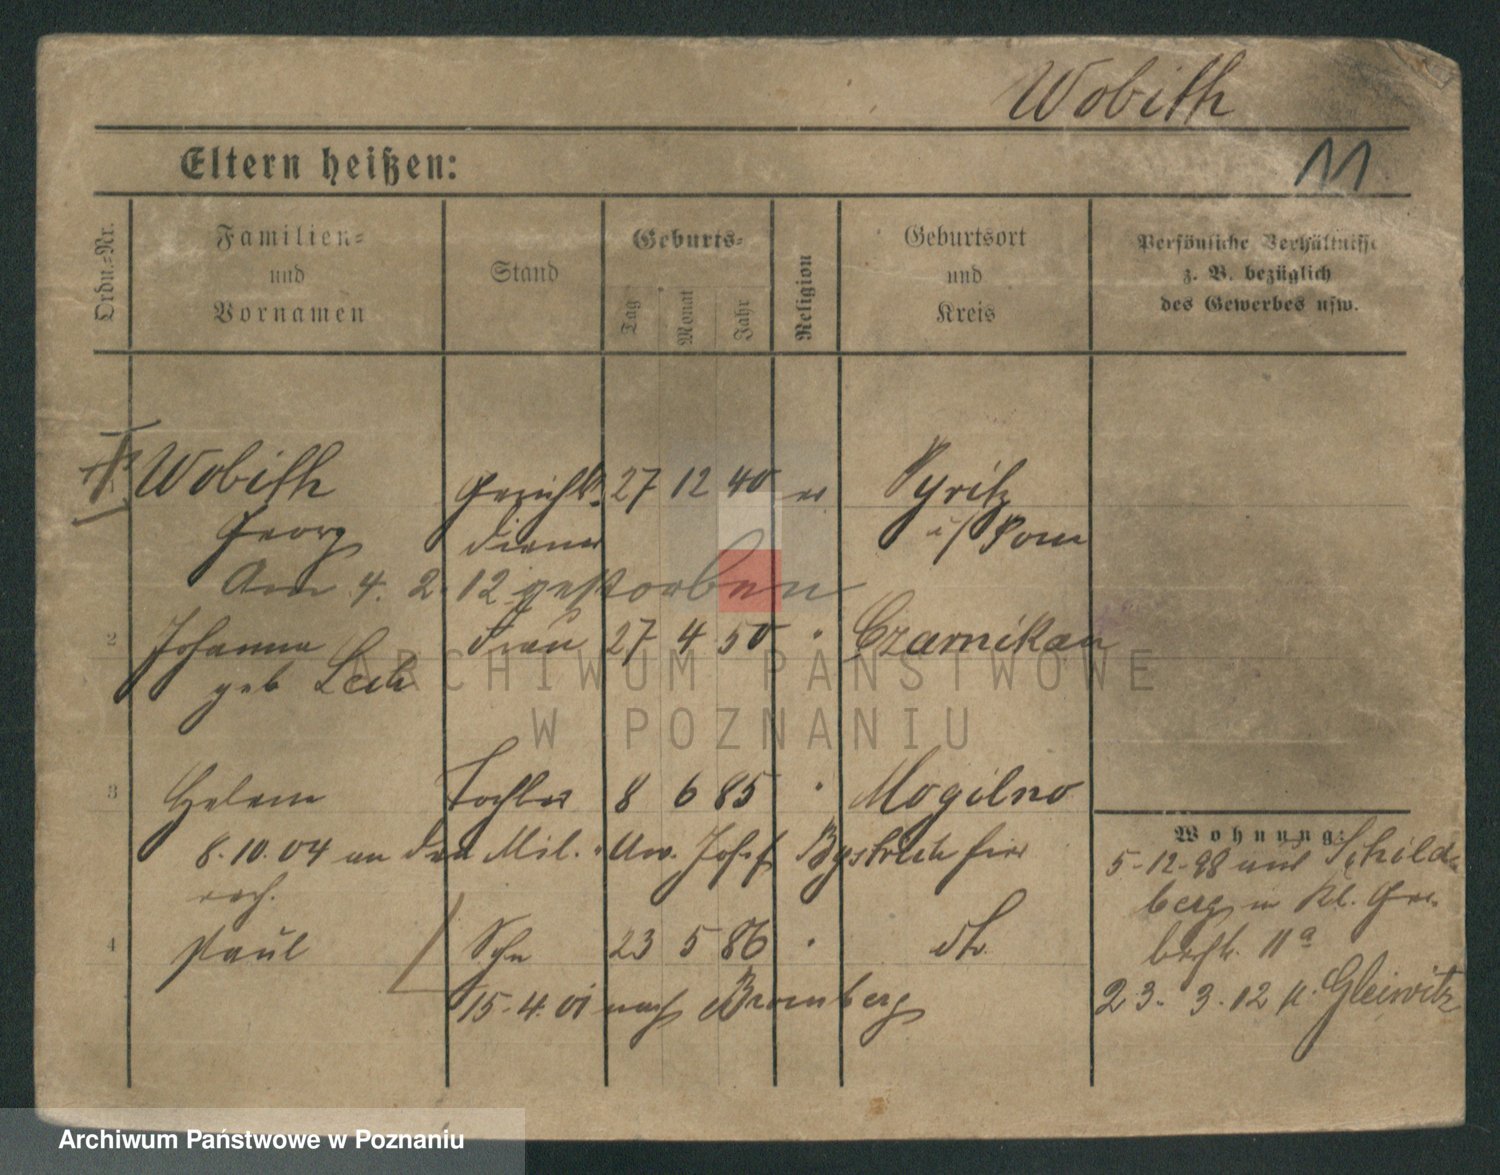 Wobith
11
Eltern heißen:
Ordn.=Nr.
Familien=
und
Vornamen
Stand
Geburts=
Tag
Monat
Jahr
Religion
Geburtsort
und
Kreis
Persönliche Verhältnisse
z. B. bezüglich
des Gewerbes usw.
Wobith Gerichts 27 12 40 ev Pyritz
Georg diener i/Pom
Am 4. 2. 12 gestorben
2 Johanna Frau 27 4 50 " Czarnikau
geb
ARCHIWUM PAŃSTWOWE
W POZNANIU
3 Helene Tochter 8 6 85 " Mogilno
8.10.04 an den Mil. Anw. Josef
verh.
4 Paul Sohn 23 5 86 " dto.
15.4.01 nach Bromberg
Wohnung:
5-12-98 aus Schild=
berg in Kl. Ger=
berstr. 11a
23. 3. 12 n. Gleiwitz
Archiwum Państwowe w Poznaniu